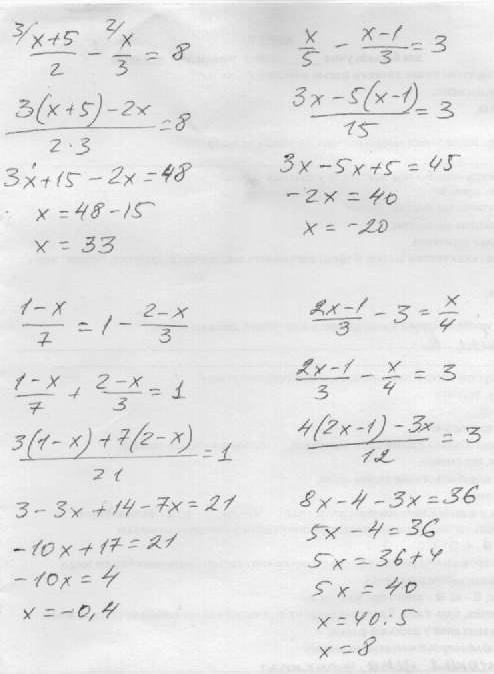 3/ (x+5)/2 - 2/ x/3 = 8
(3(x+5)-2x)/(2·3) = 8
3x+15-2x=48
x=48-15
x=33
x/5 - (x-1)/3 = 3
(3x-5(x-1))/15 = 3
3x-5x+5=45
-2x=40
x=-20
(1-x)/7 = 1 - (2-x)/3
(1-x)/7 + (2-x)/3 = 1
(3(1-x)+7(2-x))/21 = 1
3-3x+14-7x=21
-10x+17=21
-10x=4
x=-0,4
(2x-1)/3 - 3 = x/4
(2x-1)/3 - x/4 = 3
(4(2x-1)-3x)/12 = 3
8x-4-3x=36
5x-4=36
5x=36+4
5x=40
x=40:5
x=8